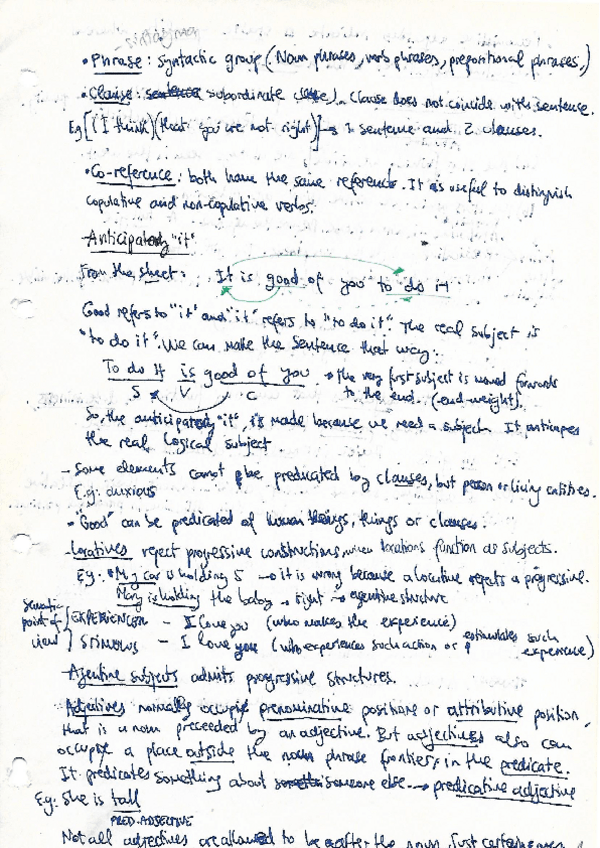 • Phrase: syntactic group (Noun phrases, verb phrases, prepositional phrases.)
• Clause: subordinate clause). Clause does not coincide with sentence.
Eg [(I think)(that you're not right)] → 1 sentence and 2 clauses.
• Co-reference: both have the same reference. It is useful to distinguish
copulative and non-copulative verbs.
- Anticipatory "it"
From the sheet: It is good of you to do it
Good refers to "it" and "it" refers to "to do it". The real subject is
"to do it". We can make the sentence that way:
To do it is good of you → the very first subject is moved forwards
S V C to the end. (end-weight).
So, the anticipatory "it", is made because we need a subject. It anticipes
the real logical subject.
- Some elements cannot be predicated by clauses, but person or living entities.
E.g. anxious
- "Good" can be predicated of human beings, things or clauses.
- Locatives reject progressive constructions, when locations function as subjects.
Eg. *My car is holding 5 → it is wrong because a locative rejects a progressive.
Mary is holding the baby → right → agentive structure
Semantic point of view
EXPERIENCER - I love you (who makes the experience)
STIMULUS - I love you (who experiences such action or estimulates such experience)
- Agentive subjects admits progressive structures.
- Adjectives normally occupy prenominative positions or attributive position,
that is a noun preceeded by an adjective. But adjectives also can
occupy a place outside the noun phrase frontiers, in the predicate.
It predicates something about someone else → predicative adjective
Eg: She is tall
PRED. ADJECTIVE
Not all adjectives are allowed to be after the noun. Just certain ones